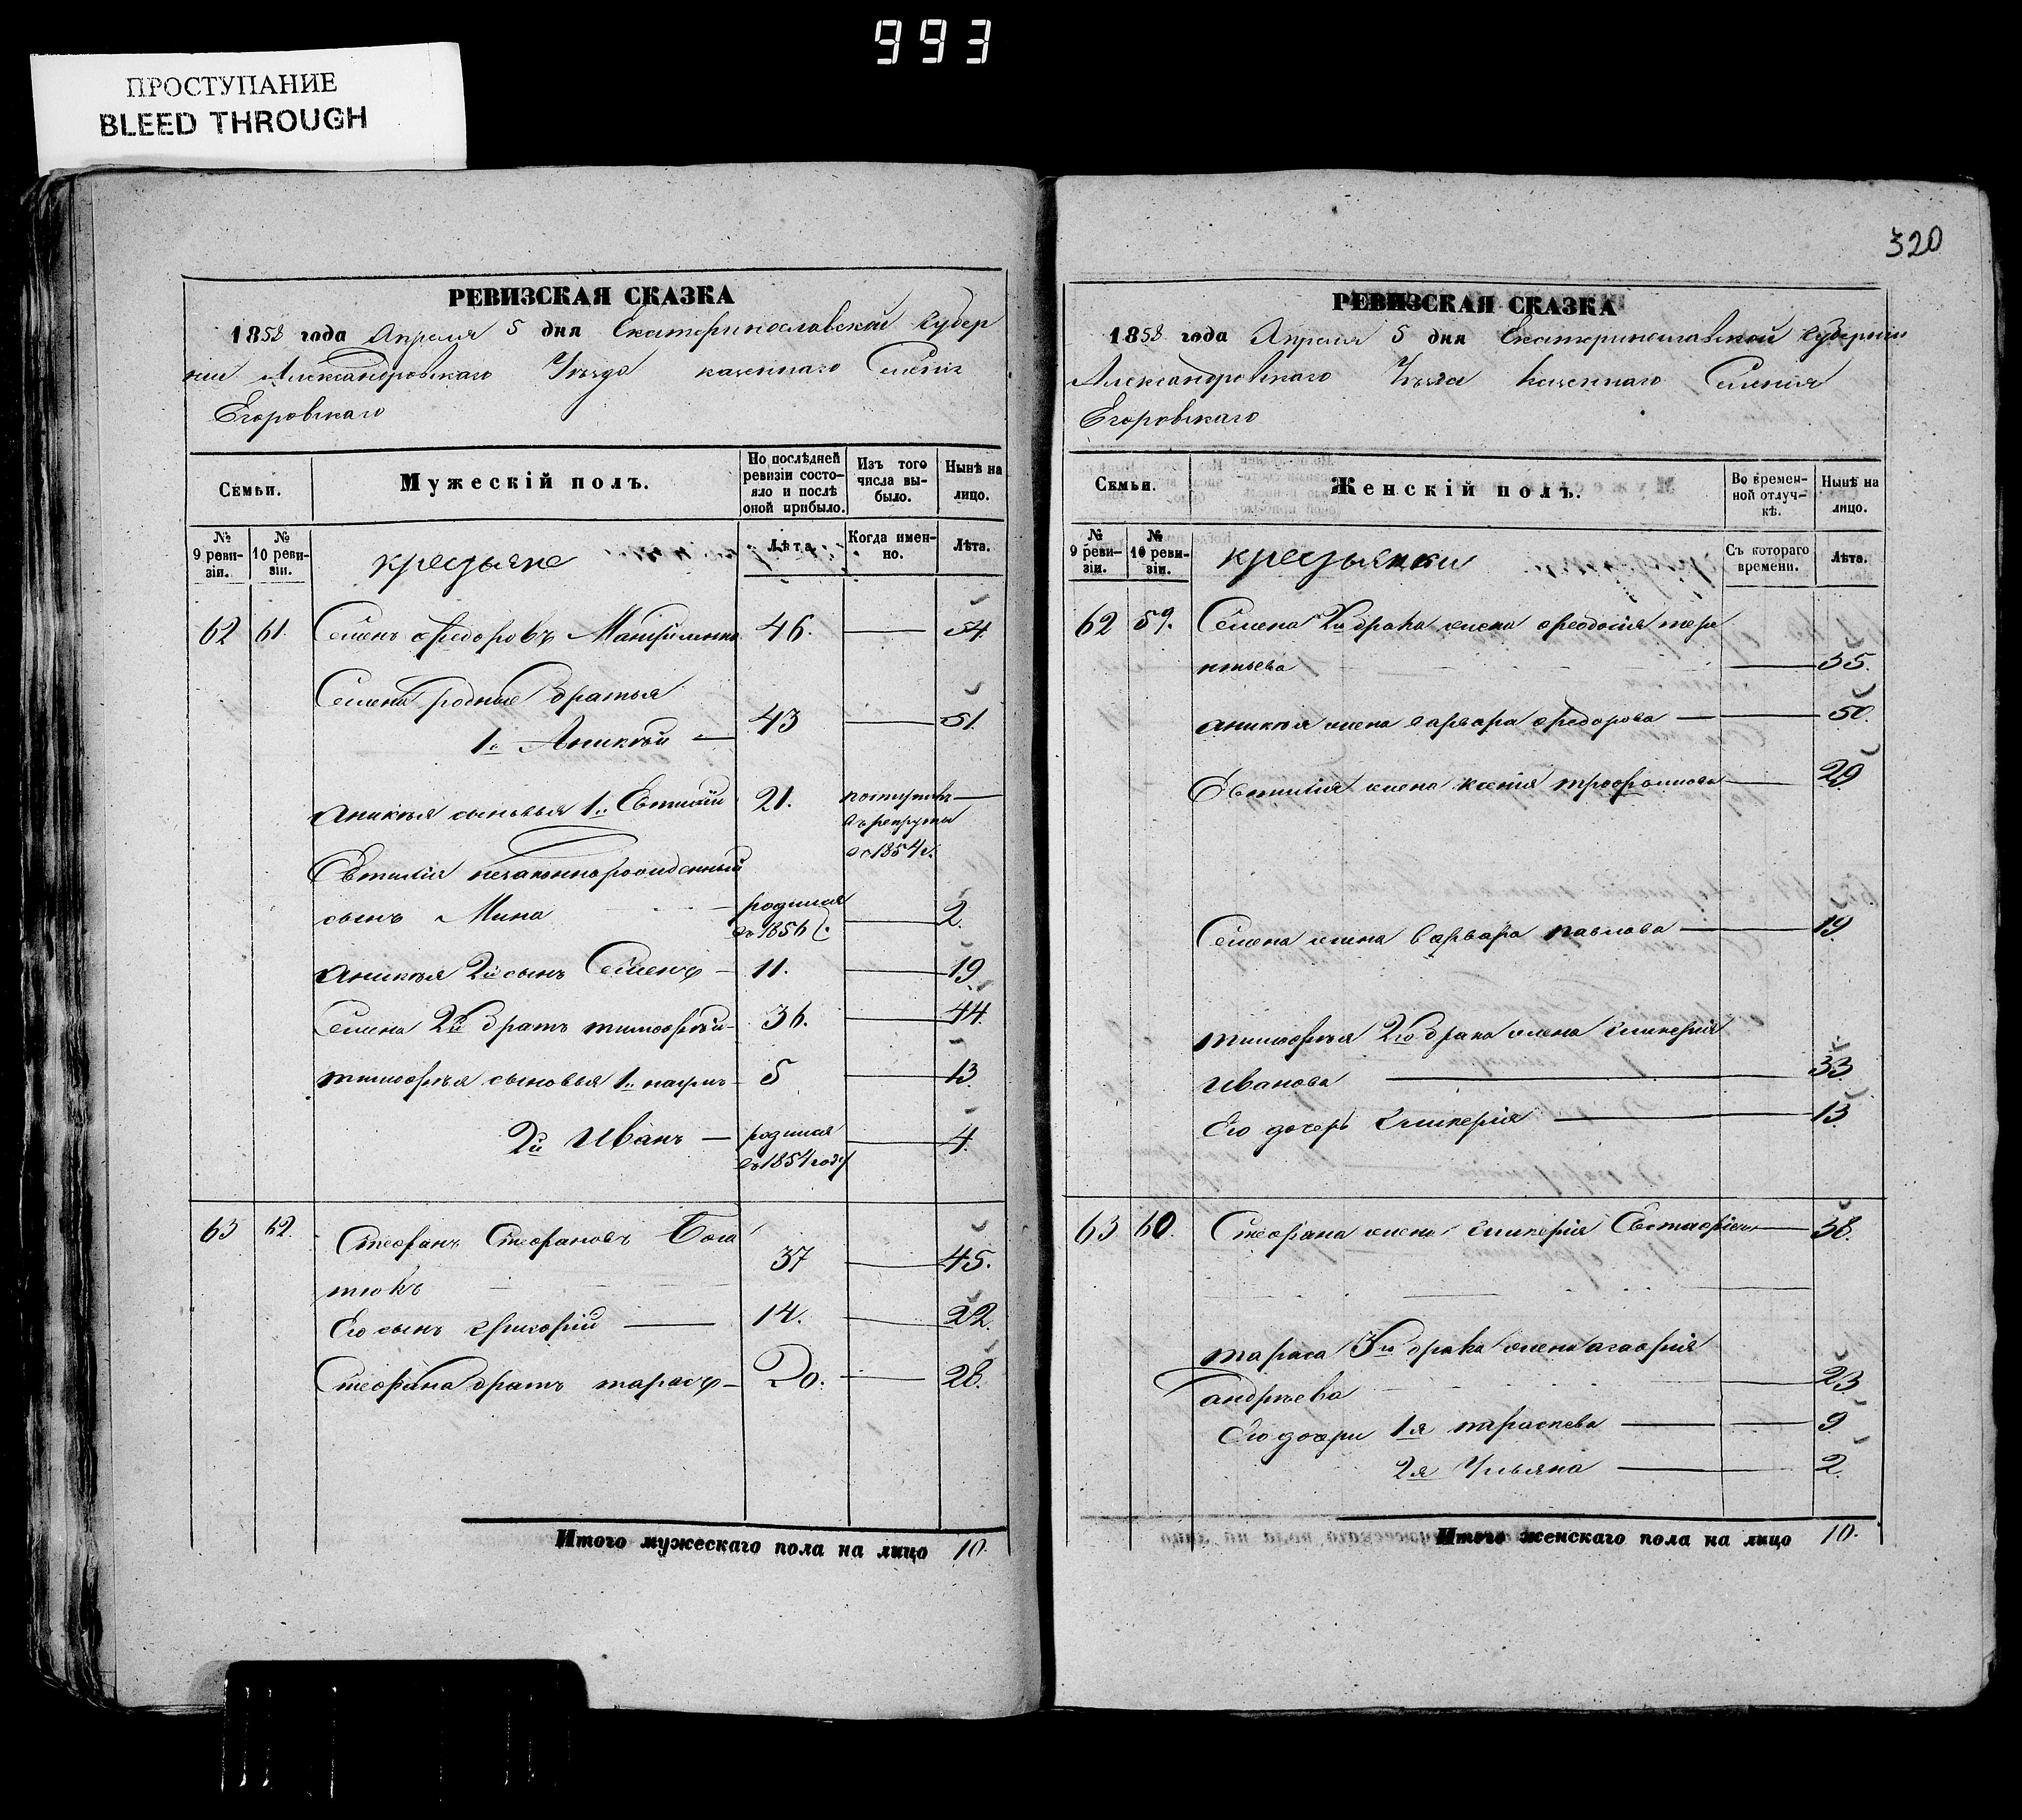 993
ПРОСТУПАНИЕ
BLEED THROUGH
РЕВИЗСКАЯ СКАЗКА
1858 года Апреля 5 дня Екатеринославской Губер
нии Александровскаго Уезда казеннаго Селения
Егоровскаго
Семьи.
Мужескій полъ.
По послѣдней ревизіи состояло и послѣ оной прибыло.
Изъ того числа выбыло.
Нынѣ на лицо.
№ 9 ревизіи.
№ 10 ревизіи.
крестьяне
Лѣта
Когда именно.
Лѣта.
62 61. Семенъ Федоровъ 46. 54.
Семена родные братья
1й Аникѣй 43 51.
Аникѣя сыновья 1й Евтихій 21. поступилъ
въ рекруты
въ 1854 г.
Евтихія незаконнорожденный
сынъ Мина родился
въ 1856 г. 2.
Аникѣя 2й сынъ Семенъ 11. 19.
Семена 2й братъ Тимофѣй 36. 44.
Тимофѣя сыновья 1й 5 13.
2й Иванъ родился
въ 1854 году 4.
63 62. Стефанъ Стефановъ Бога
тюкъ 37 45.
Его сынъ Григорій 14. 22.
Стефана братъ Тарасъ 20. 28.
Итого мужескаго пола на лицо 10.
320
РЕВИЗСКАЯ СКАЗКА
1858 года Апреля 5 дня Екатеринославской Губернии
Александровскаго Уезда Казеннаго Селения
Егоровскаго
Семьи.
Женскій полъ.
Во временной отлучкѣ.
Нынѣ на лицо.
№ 9 ревизіи.
№ 10 ревизіи.
крестьянки
Съ котораго времени.
Лѣта.
62 59. Семена 2й брака жена Феодосія Тере
нтьева 35.
Аникѣя жена Варвара Федорова 50.
Евтихія жена Ксенія Трофимова 29.
Семена жена Варвара Павлова 19.
Тимофѣя 2го брака жена Гликерія
Иванова 33.
Его дочерь Гликерія 13.
63 60. Стефана жена Гликерія 38.
Тараса 3й брака жена Агафия
Андрѣева 23.
Его дочери 1я Параскева 9.
2я Ульяна 2.
Итого женскаго пола на лицо 10.